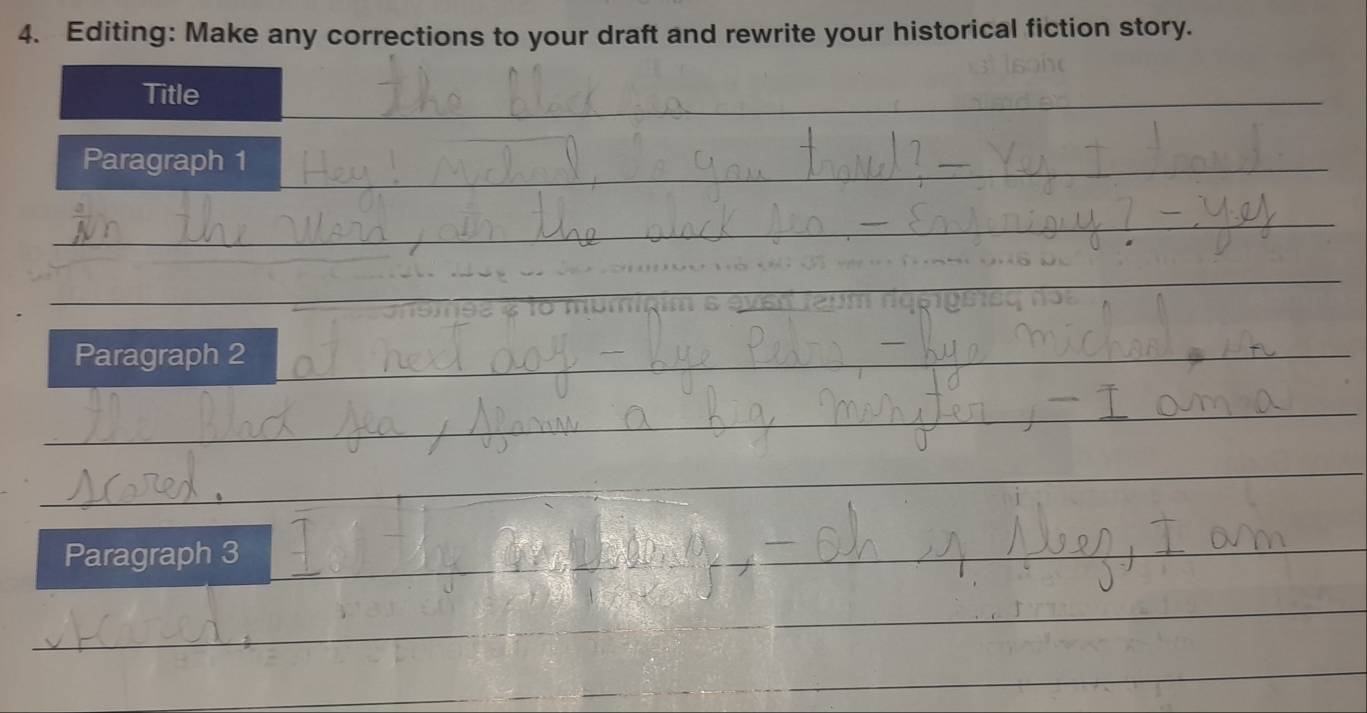 4. Editing: Make any corrections to your draft and rewrite your historical fiction story.
Title The black sea
Paragraph 1 Hey! Michael, do you travel? - Yes I travel
in the Word, in the black sea - ? - yes
Paragraph 2 at next day - bye Pedro, - bye michael, in
the Black sea, a big monster, - I am a
scared.
Paragraph 3 - oh is sleep, I am
scared.